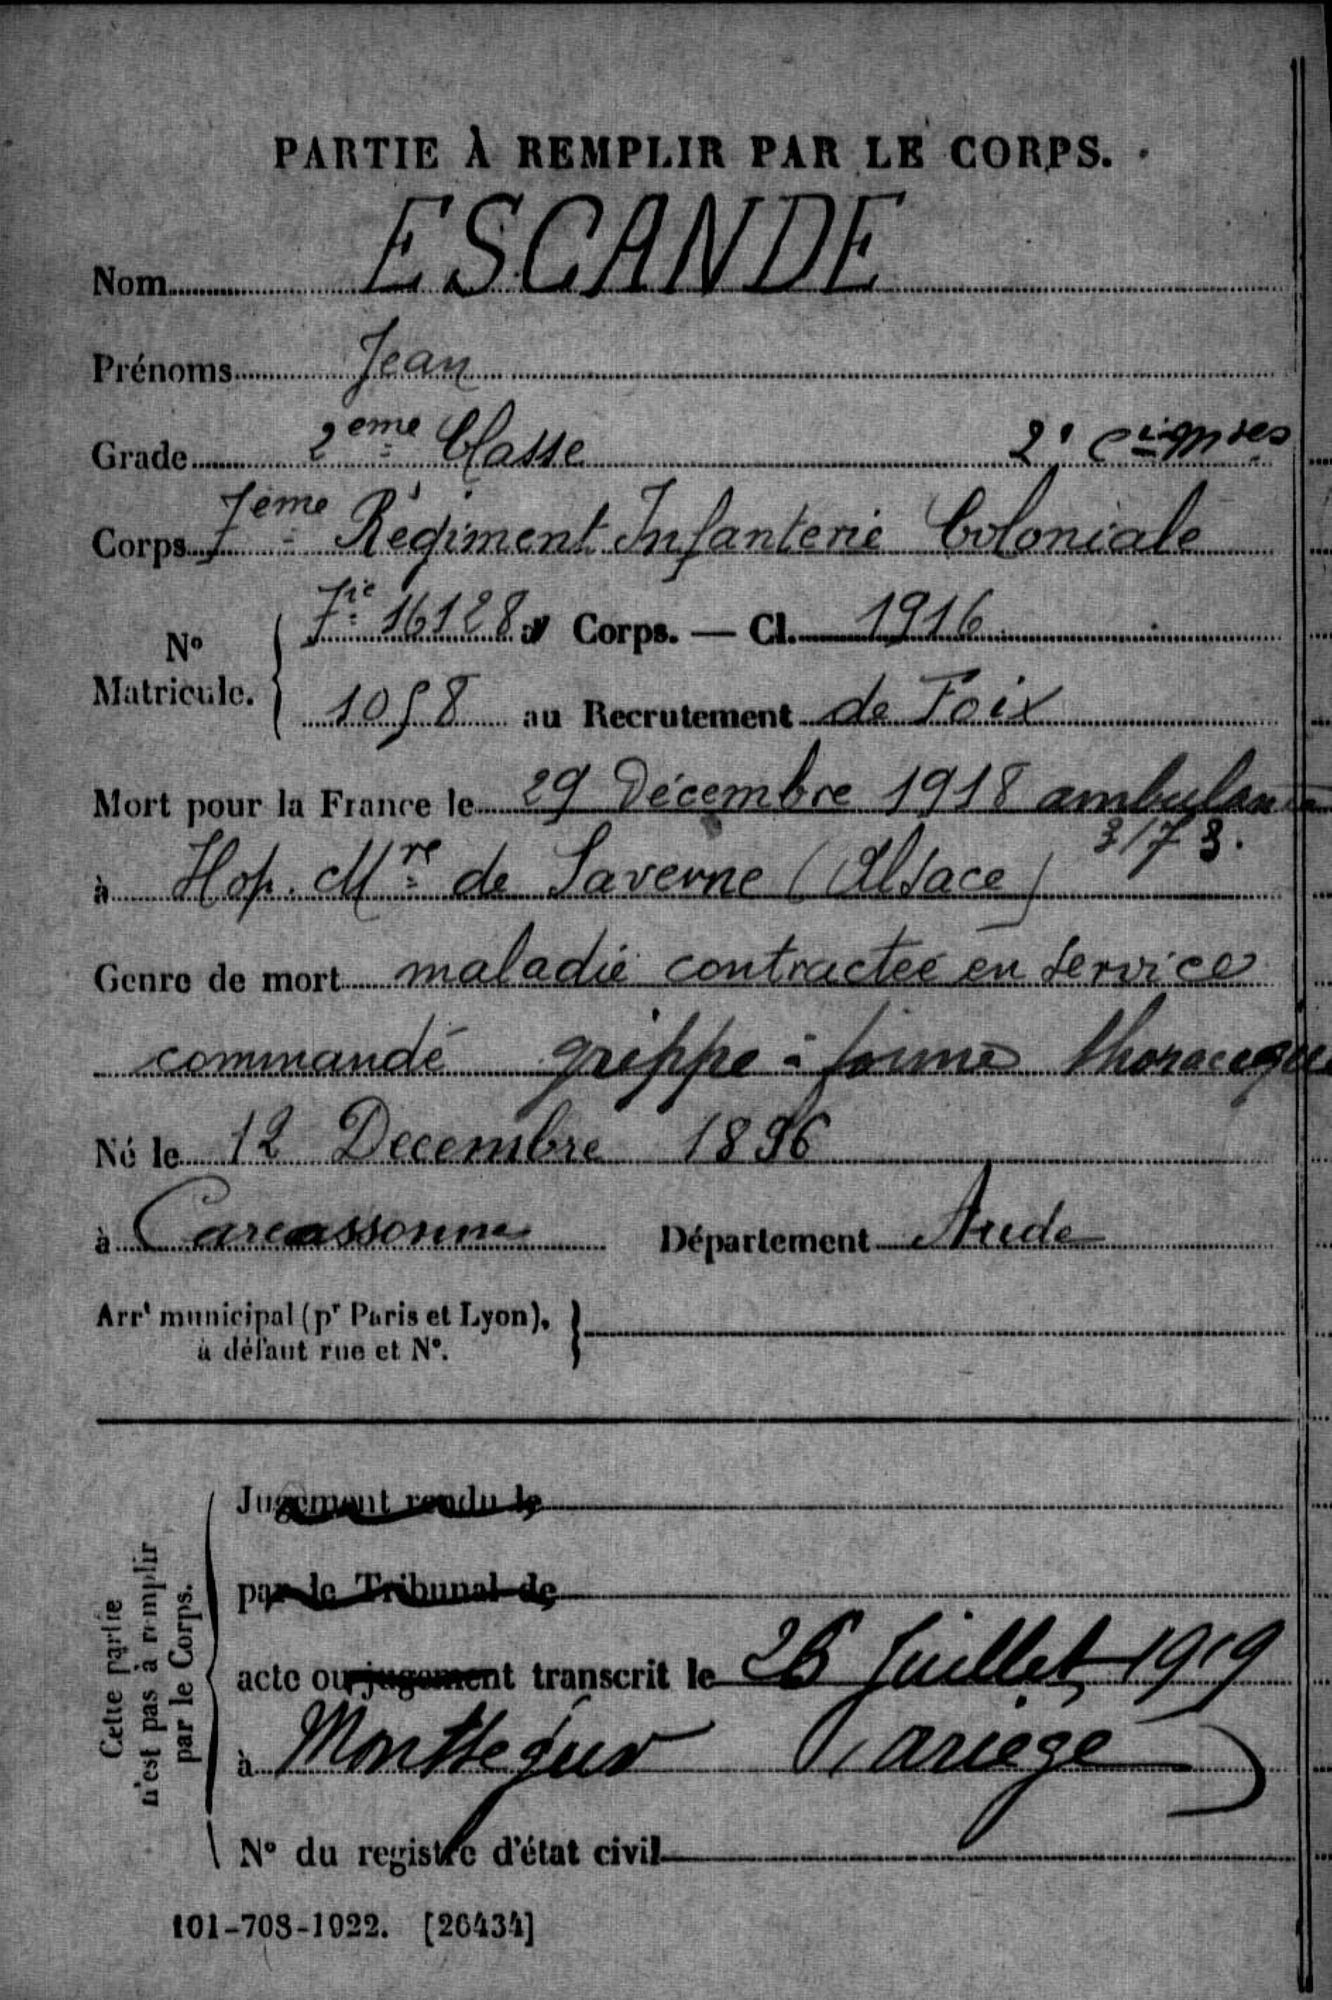 PARTIE À REMPLIR PAR LE CORPS.
Nom ESCANDE
Prénoms Jean
Grade 2eme Classe
Corps 7eme Régiment Infanterie Coloniale
N° Matricule. 16128 au Corps. — Cl. 1916
1058 au Recrutement de Foix
Mort pour la France le 29 Décembre 1918 ambulance
3/73.
à Hop. Mre de Saverne (Alsace)
Genre de mort maladie contractée en service
commandé grippe à forme thoracique
Né le 12 Decembre 1896
à Carcassonne Département Aude
Arrt municipal (pr Paris et Lyon),
à défaut rue et N°.
Cette partie
n'est pas à remplir
par le Corps.
Jugement rendu le
par le Tribunal de
acte ou jugement transcrit le 26 Juillet 1919
à Montségur (ariège)
N° du registre d'état civil
101-708-1922. [26434]